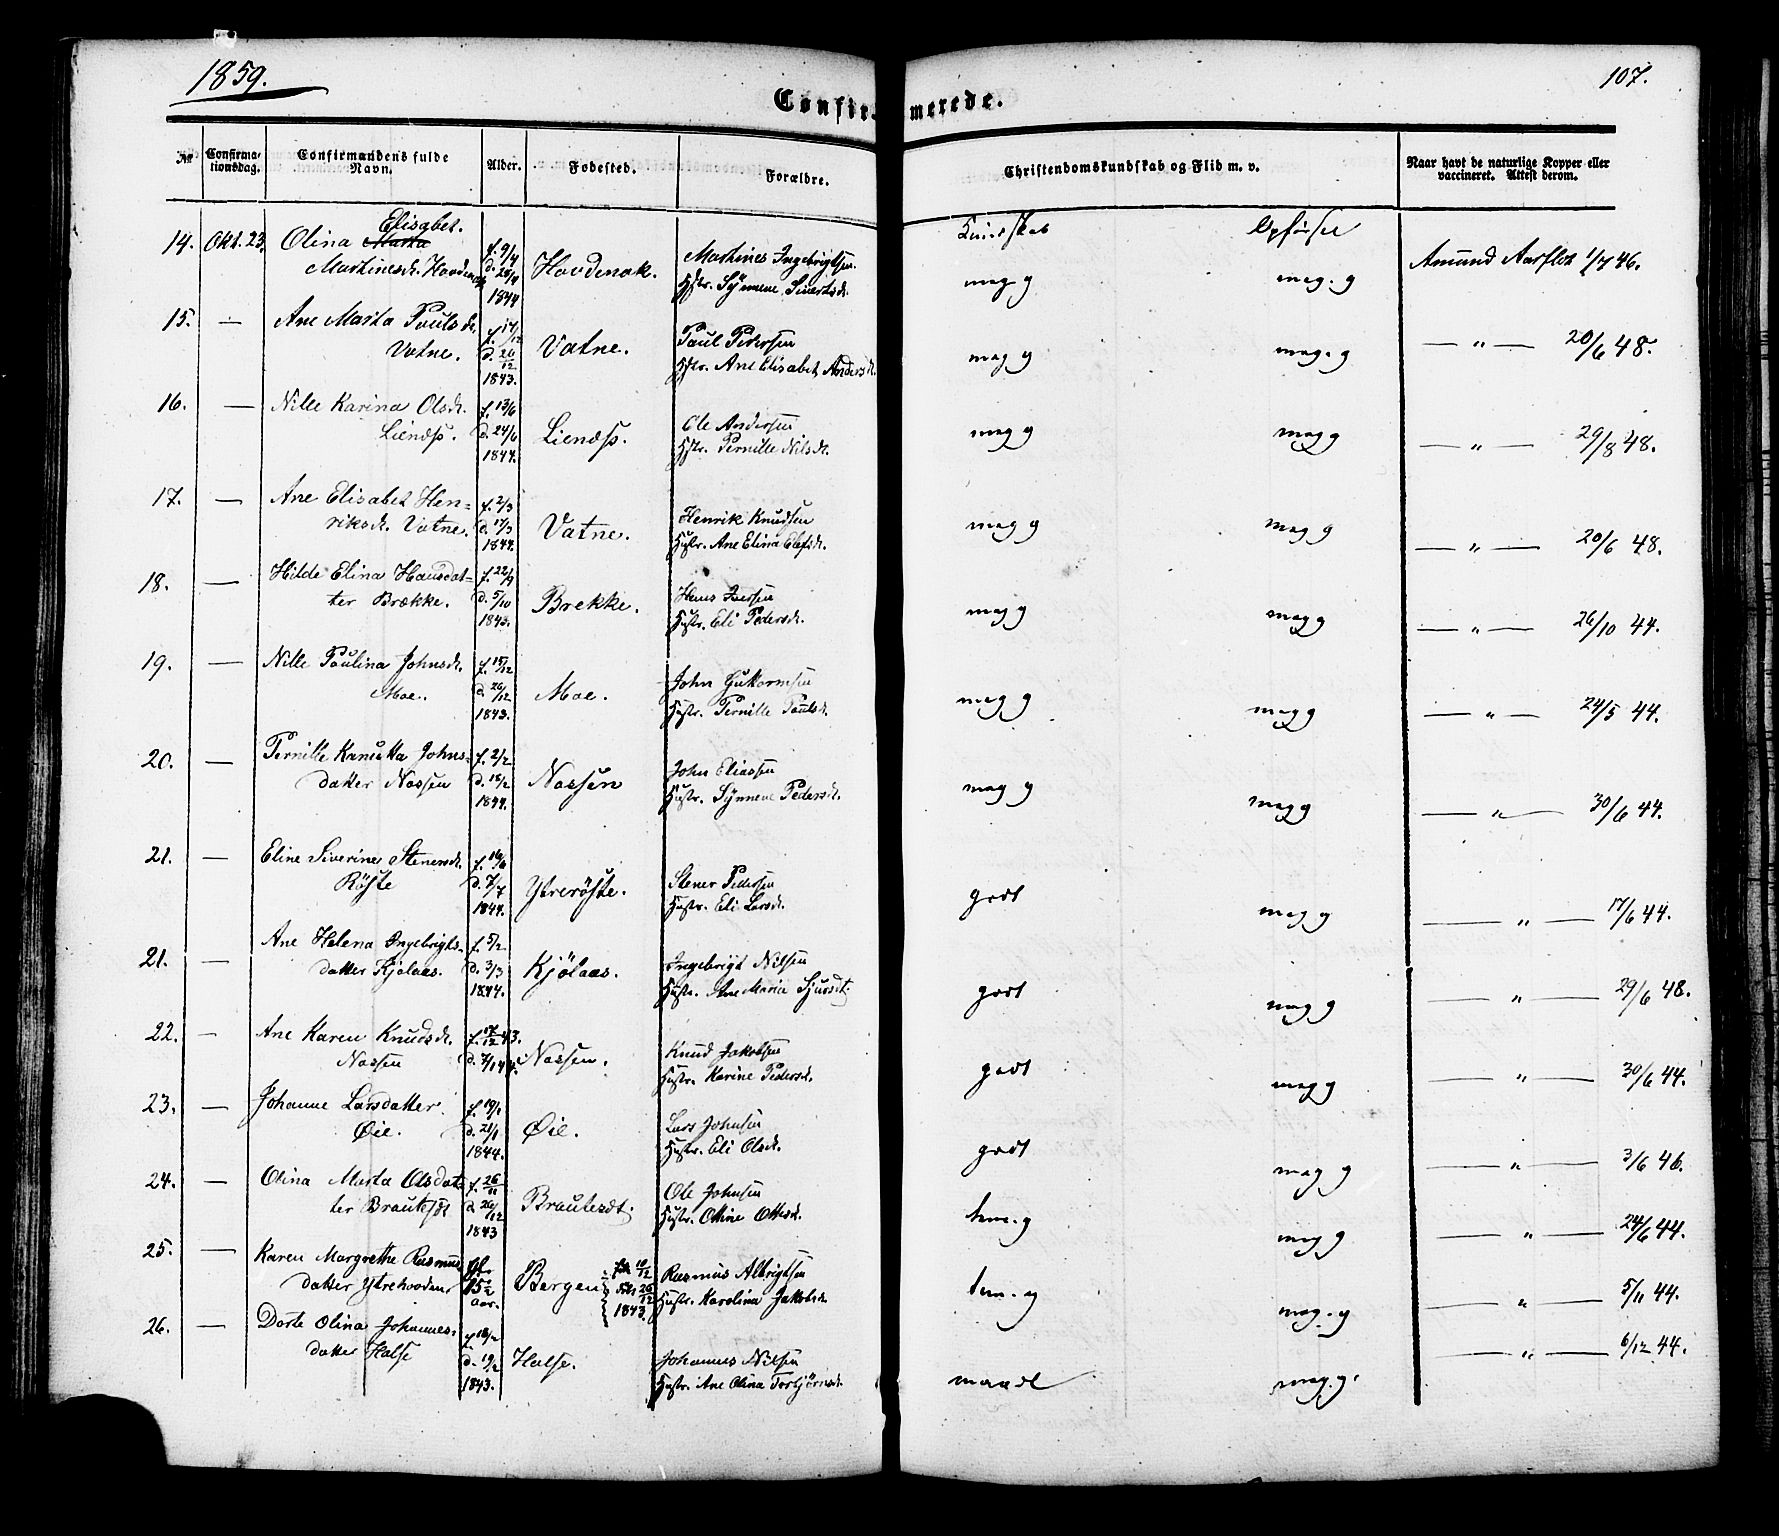 1859.
107.
Confirmerede.
No
Confirmationsdag.
Confirmandens fulde Navn.
Alder.
Fødested.
Forældre.
Christendomskundskab og Flid m. v.
Naar havt de naturlige Kopper eller vaccineret. Attest derom.
Kundskab Opførsel
14. Okt. 23. Olina Marta Elisabet.
Martinesdr. Hovdenak
f. 9/4
d. 28/4
1844
Hovdenak.
Martines Ingebrigtsen.
Hstr. Synneve Sivertsdr.
meg g meg. g Amund Aarflot 1/7 46.
15. — Ane Marta Poulsdr.
Vatne.
f. 17/12
d. 26/12
1843.
Vatne.
Paul Pedersen
Hstr. Ane Elisabet Andersdr.
meg g meg. g — " — 20/6 48.
16. — Nille Karina Olsdr.
Liendss.
f. 13/6
d. 24/6
1844.
Liendss.
Ole Andersen
Hstr. Pernille Nilsdr.
meg g meg g — " — 29/8 48.
17. — Ane Elisabet Hen-
riksdr. Vatne.
f. 2/3
d. 17/3
1844.
Vatne.
Henrik Knudsen
Hustr. Ane Elina Elefsdr.
meg g meg g — " — 20/6 48.
18. — Hilde Elina Hansdat-
ter Brække.
f. 22/9
d. 5/10
1843.
Brekke.
Hans Iversen
Hustr. Eli Pedersdr.
meg g meg g — " — 26/10 44.
19. — Nille Paulina Johnsdr.
Moe.
f. 15/12
d. 26/12
1843.
Moe.
John Guttormsen
Hustr. Pernille Paulsdr.
meg g meg g — " — 24/5 44.
20. — Pernille Kanutta Johns-
datter Nossen
f. 2/2
d. 18/2
1844.
Nossen
John Eliassen
Hustr. Synneve Pedersdr.
meg g meg g — " — 30/6 44.
21. — Eline Siverine Stenersdr.
Röste
f. 16/6
d. 7/7
1844.
Ytreröste.
Stener Pedersen
Hustr. Eli Larsdr.
godt meg g — " — 17/6 44.
21. — Ane Helena Ingebrigts-
datter Kjølaas.
f. 5/2
d. 3/3
1844.
Kjölaas.
Ingebrigt Nilsen
Hustr. Ane Maria Sjursdt.
godt meg g — " — 29/6 48.
22. — Ane Karen Knudsdr.
Nossen
f. 17/12 43.
d. 7/1 44.
Nossen.
Knud Jakobsen
Hustr. Karine Pedersdr.
godt meg g — " — 30/6 44.
23. — Johanne Larsdatter.
Øie.
f. 19/1
d. 21/1
1844.
Øie.
Lars Johnsen
Hustr. Eli Olsdr.
godt meg g — " — 3/6 46.
24. — Olina Marta Olsdat-
ter
f. 26/11
d. 26/12
1843
Ole Johnsen
Hustr. Ottine Ottesdr.
tem. g meg g — " — 24/6 44.
25. — Karen Margrethe Rasmus
datter Ytrehovden
15 1/2
aar.
Bergen
10/12
26/12
1843.
Rasmus Albrigtsen
Hustr. Karolina Jakobsdr.
tem. g meg. g — " — 5/11 44.
26. — Dorte Olina Johannes-
datter Halse
f. 18/2
d. 19/2
1843.
Halse.
Johannes Nilsen
Hustr. Ane Olina Torbjørnsdr.
maadl meg. g. — " — 6/12 44.